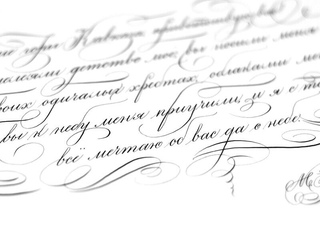 горы Кавказа приветствую вас
лелеяли детство мое; вы носили меня
воих одичалых хребтах, облаками меня
вы к небу меня приучили, и я с т
всё мечтаю об вас да о небе.